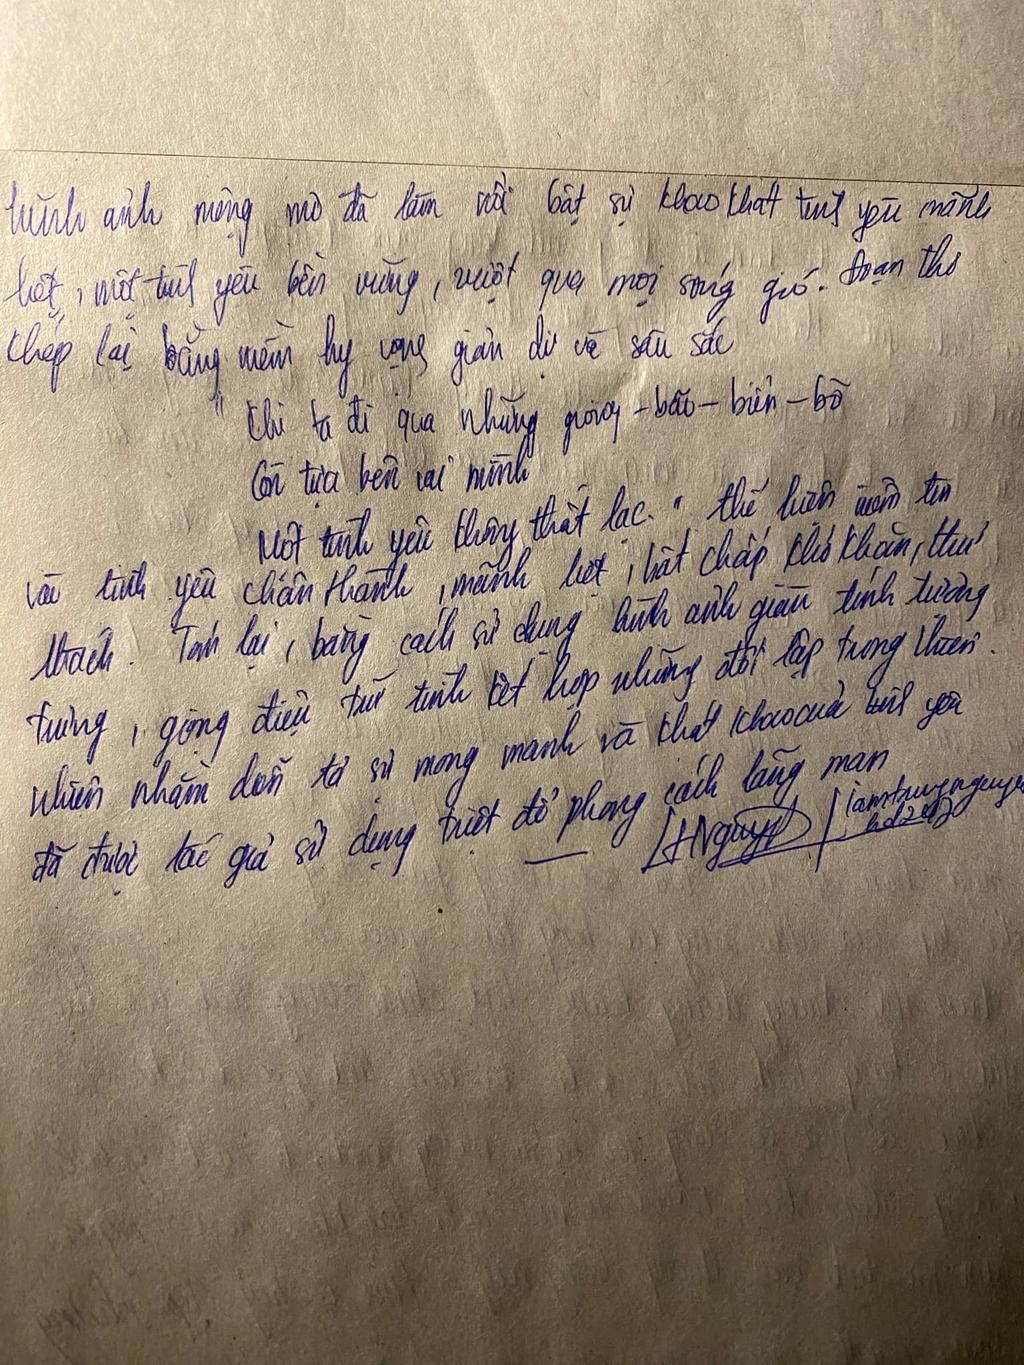 hình ảnh mộng mơ đã làm nổi bật sự khao khát tình yêu mãnh
liệt, một tình yêu bền vững, vượt qua mọi sóng gió. Đoạn thơ
khép lại bằng niềm hy vọng giản dị và sâu sắc
" Khi ta đi qua những giông - bão - biển - bờ
Còn tựa bên vai mình
Một tình yêu không thất lạc. " thể hiện niềm tin
vào tình yêu chân thành, mãnh liệt, bất chấp khó khăn, thử
thách. Tóm lại, bằng cách sử dụng hình ảnh giàu tính tượng
trưng, giọng điệu trữ tình kết hợp những đối lập trong thiên
nhiên nhằm diễn tả sự mong manh và khát khao của tình yêu
đã được tác giả sử dụng triệt để phong cách lãng mạn